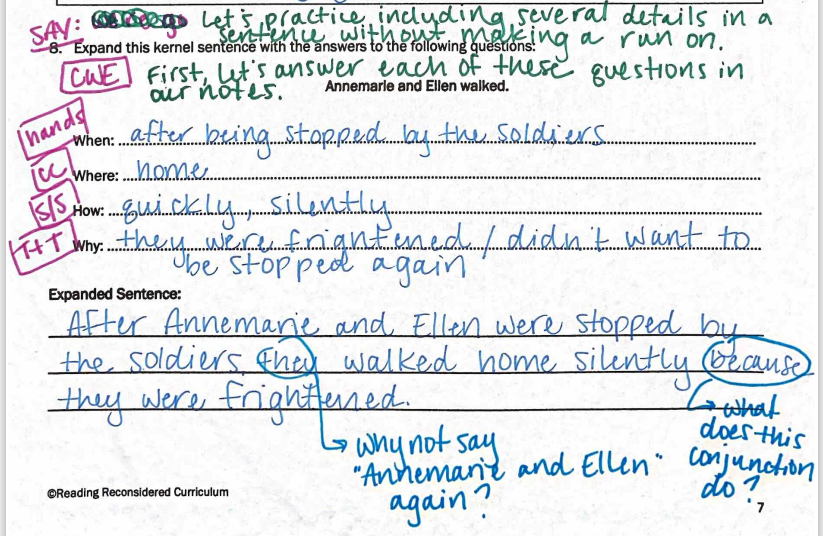 SAY: Let's practice including several details in a
sentence without making a run on.
8. Expand this kernel sentence with the answers to the following questions:
CWE First, let's answer each of these questions in
our notes.
Annemarie and Ellen walked.
hands When: after being stopped by the soldiers
CC Where: home
S/S How: quickly, silently
T+T Why: they were frightened / didn't want to
be stopped again
Expanded Sentence:
After Annemarie and Ellen were stopped by
the soldiers, they walked home silently because
they were frightened.
→ what
does this
conjunction
do?
→ why not say
"Annemarie and Ellen"
again?
©Reading Reconsidered Curriculum
7